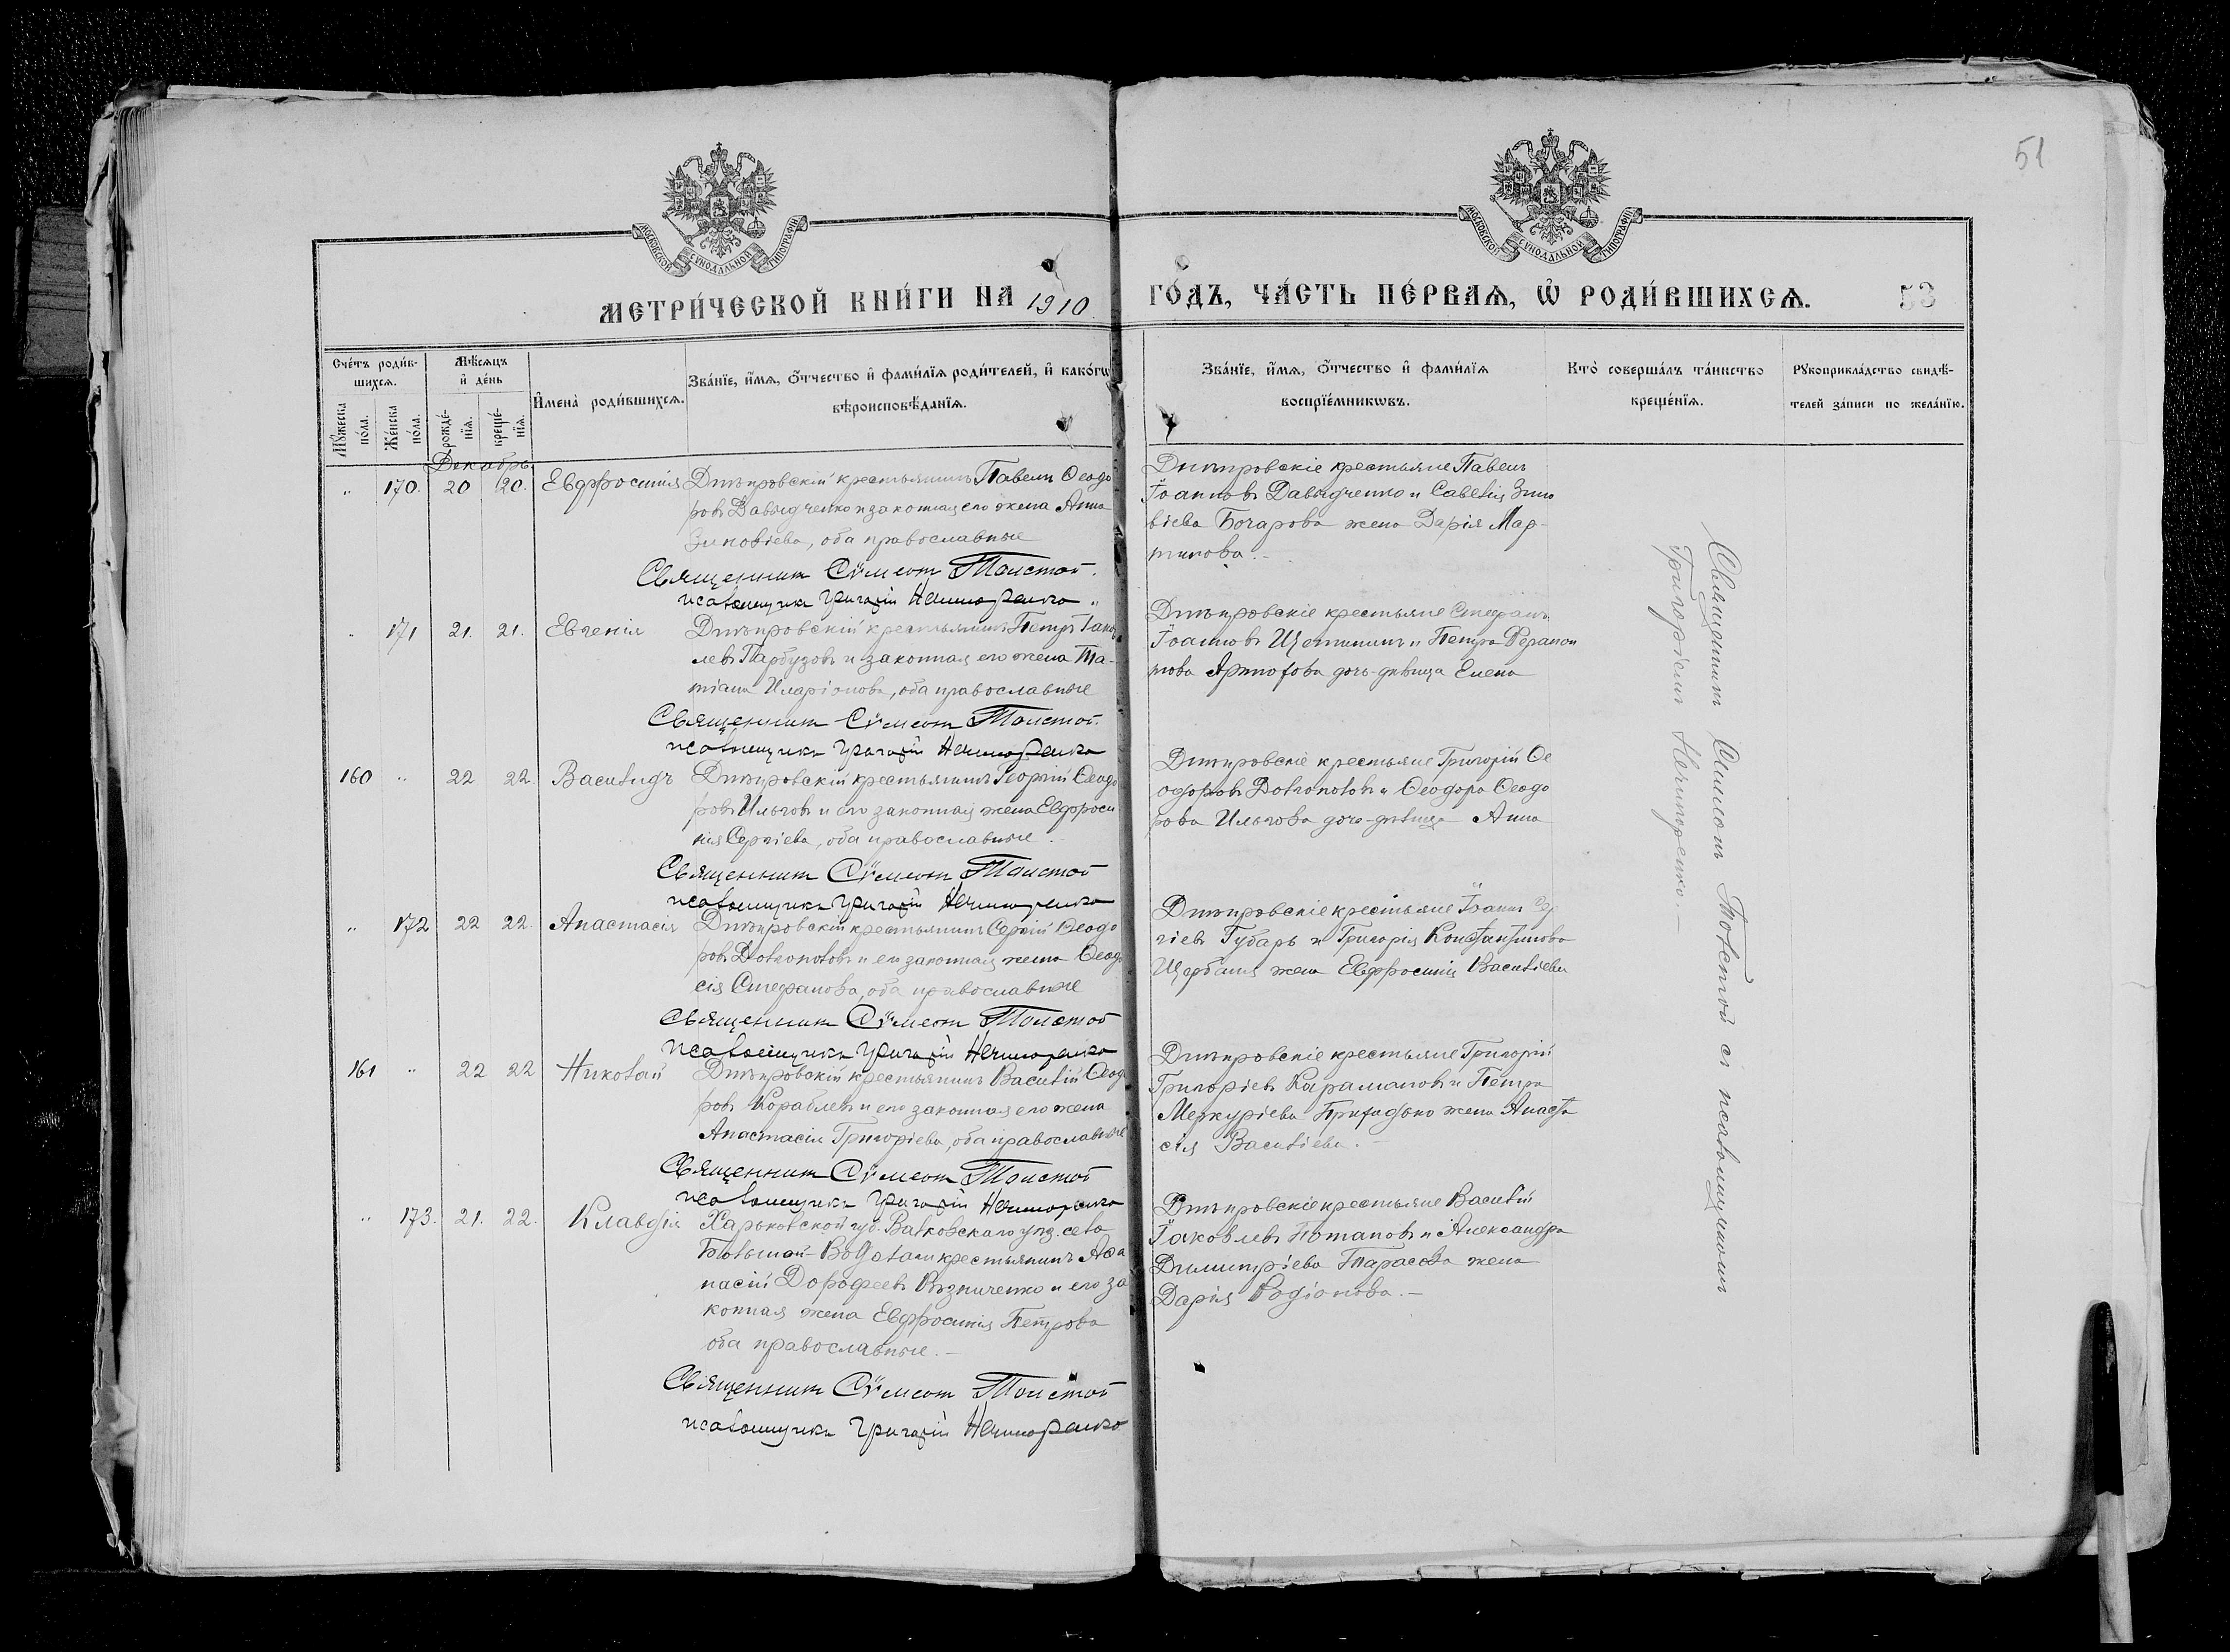 51
МОСКОВСКОЙ СѴНОДАЛЬНОЙ ТИПОГРАФІИ
МОСКОВСКОЙ СѴНОДАЛЬНОЙ ТИПОГРАФІИ
МЕТРИ́ЧЕСКОЙ КНИ́ГИ НА 1910
ГО́ДЪ, ЧА́СТЬ ПЕ́РВАѦ, Ѡ РОДИ́ВШИХСѦ. 53
Сче́тъ роди́в-
шихсѧ.
Мѣ́сѧцъ
и҆ де́нь
Мꙋ́жеска
по́ла.
Же́нска
по́ла.
рожде́-
нїѧ.
креще́-
нїѧ.
И҆мена̀ роди́вшихсѧ.
Зва́нїе, и҆́мѧ, ѻ҆́тчество и҆ фами́лїѧ роди́телей, и҆ како́гѡ
вѣроисповѣ́данїѧ.
Зва́нїе, и҆́мѧ, ѻ҆́тчество и҆ фами́лїѧ
воспрїе́мникѡвъ.
Кто̀ соверша́лъ та́инство
креще́нїѧ.
Рꙋкоприкла́дство свидѣ́-
телей за́писи по жела́нїю.
Декабрь
" 170. 20 20. Евфросинія Днѣпровскій крестьянинъ Павелъ Ѳеодо
ровъ Давыдченко и законная его жена Анна
Зиновіева, оба православные
Священникъ Сѵмеонъ Толстой.
псаломщикъ Григорій Нечипоренко
Днѣпровскіе крестьяне Павелъ
Іоанновъ Давыдченко и Савелія Зино
віева Бочарова жена Дарія Мар-
тинова.-
" 171 21. 21. Евгенія Днѣпровскій крестьянинъ Петръ Іаков
левъ Гарбузовъ и законная его жена Та-
тіана Иларіонова, оба православные
Священникъ Сѵмеонъ Толстой.
псаломщикъ Григорій Нечипоренко
Днѣпровскіе крестьяне Стефанъ
Іоанновъ Щетининъ и Петра Ферапон
това дочь-дѣвица Елена
160 " 22 22. Василидъ Днѣпровскій крестьянинъ Георгій Ѳеодо
ровъ Ильговъ и его законная жена Евфроси
нія Сергіева, оба православные.-
Священникъ Сѵмеонъ Толстой
псаломщикъ Григорій Нечипоренко
Днѣпровскіе крестьяне Григорій Ѳе
одоровъ и Ѳеодора Ѳеодо
рова Ильгова дочь-дѣвица Анна
" 172 22 22. Анастасія Днѣпровскій крестьянинъ Сергій Ѳеодо
ровъ и его законная жена Ѳеодо
сія Стефанова, оба православные
Священникъ Сѵмеонъ Толстой
псаломщикъ Григорій Нечипоренко
Днѣпровскіе крестьяне Іоаннъ Сер
гіевъ Губарь и Григорія Константинова
Щербаня жена Евфросинія Василіева
161 " 22 22 Николай Днѣпровскій крестьянинъ Василій Ѳеодо
ровъ Кораблевъ и его законная его жена
Анастасія Григоріева, оба православные
Священникъ Сѵмеонъ Толстой
псаломщикъ Григорій Нечипоренко
Днѣпровскіе крестьяне Григорій
Григоріевъ Карамановъ и Петра
Меркуріева жена Анаста
сія Василіева.-
" 173. 21. 22. Клавдія Харьковской губ. Валковскаго уѣз. села
крестьянинъ Аѳа
насій Дорофеевъ и его за
конная жена Евфросинія Петрова
оба православные.-
Священникъ Сѵмеонъ Толстой
псаломщикъ Григорій Нечипоренко
Днѣпровскіе крестьяне Василій
Іаковлевъ Потаповъ и Александра
Димитріева Тарасова жена
Дарія Родіонова.-
Священникъ Симеонъ Толстой съ псаломщикомъ
Григоріемъ Нечипоренко.-